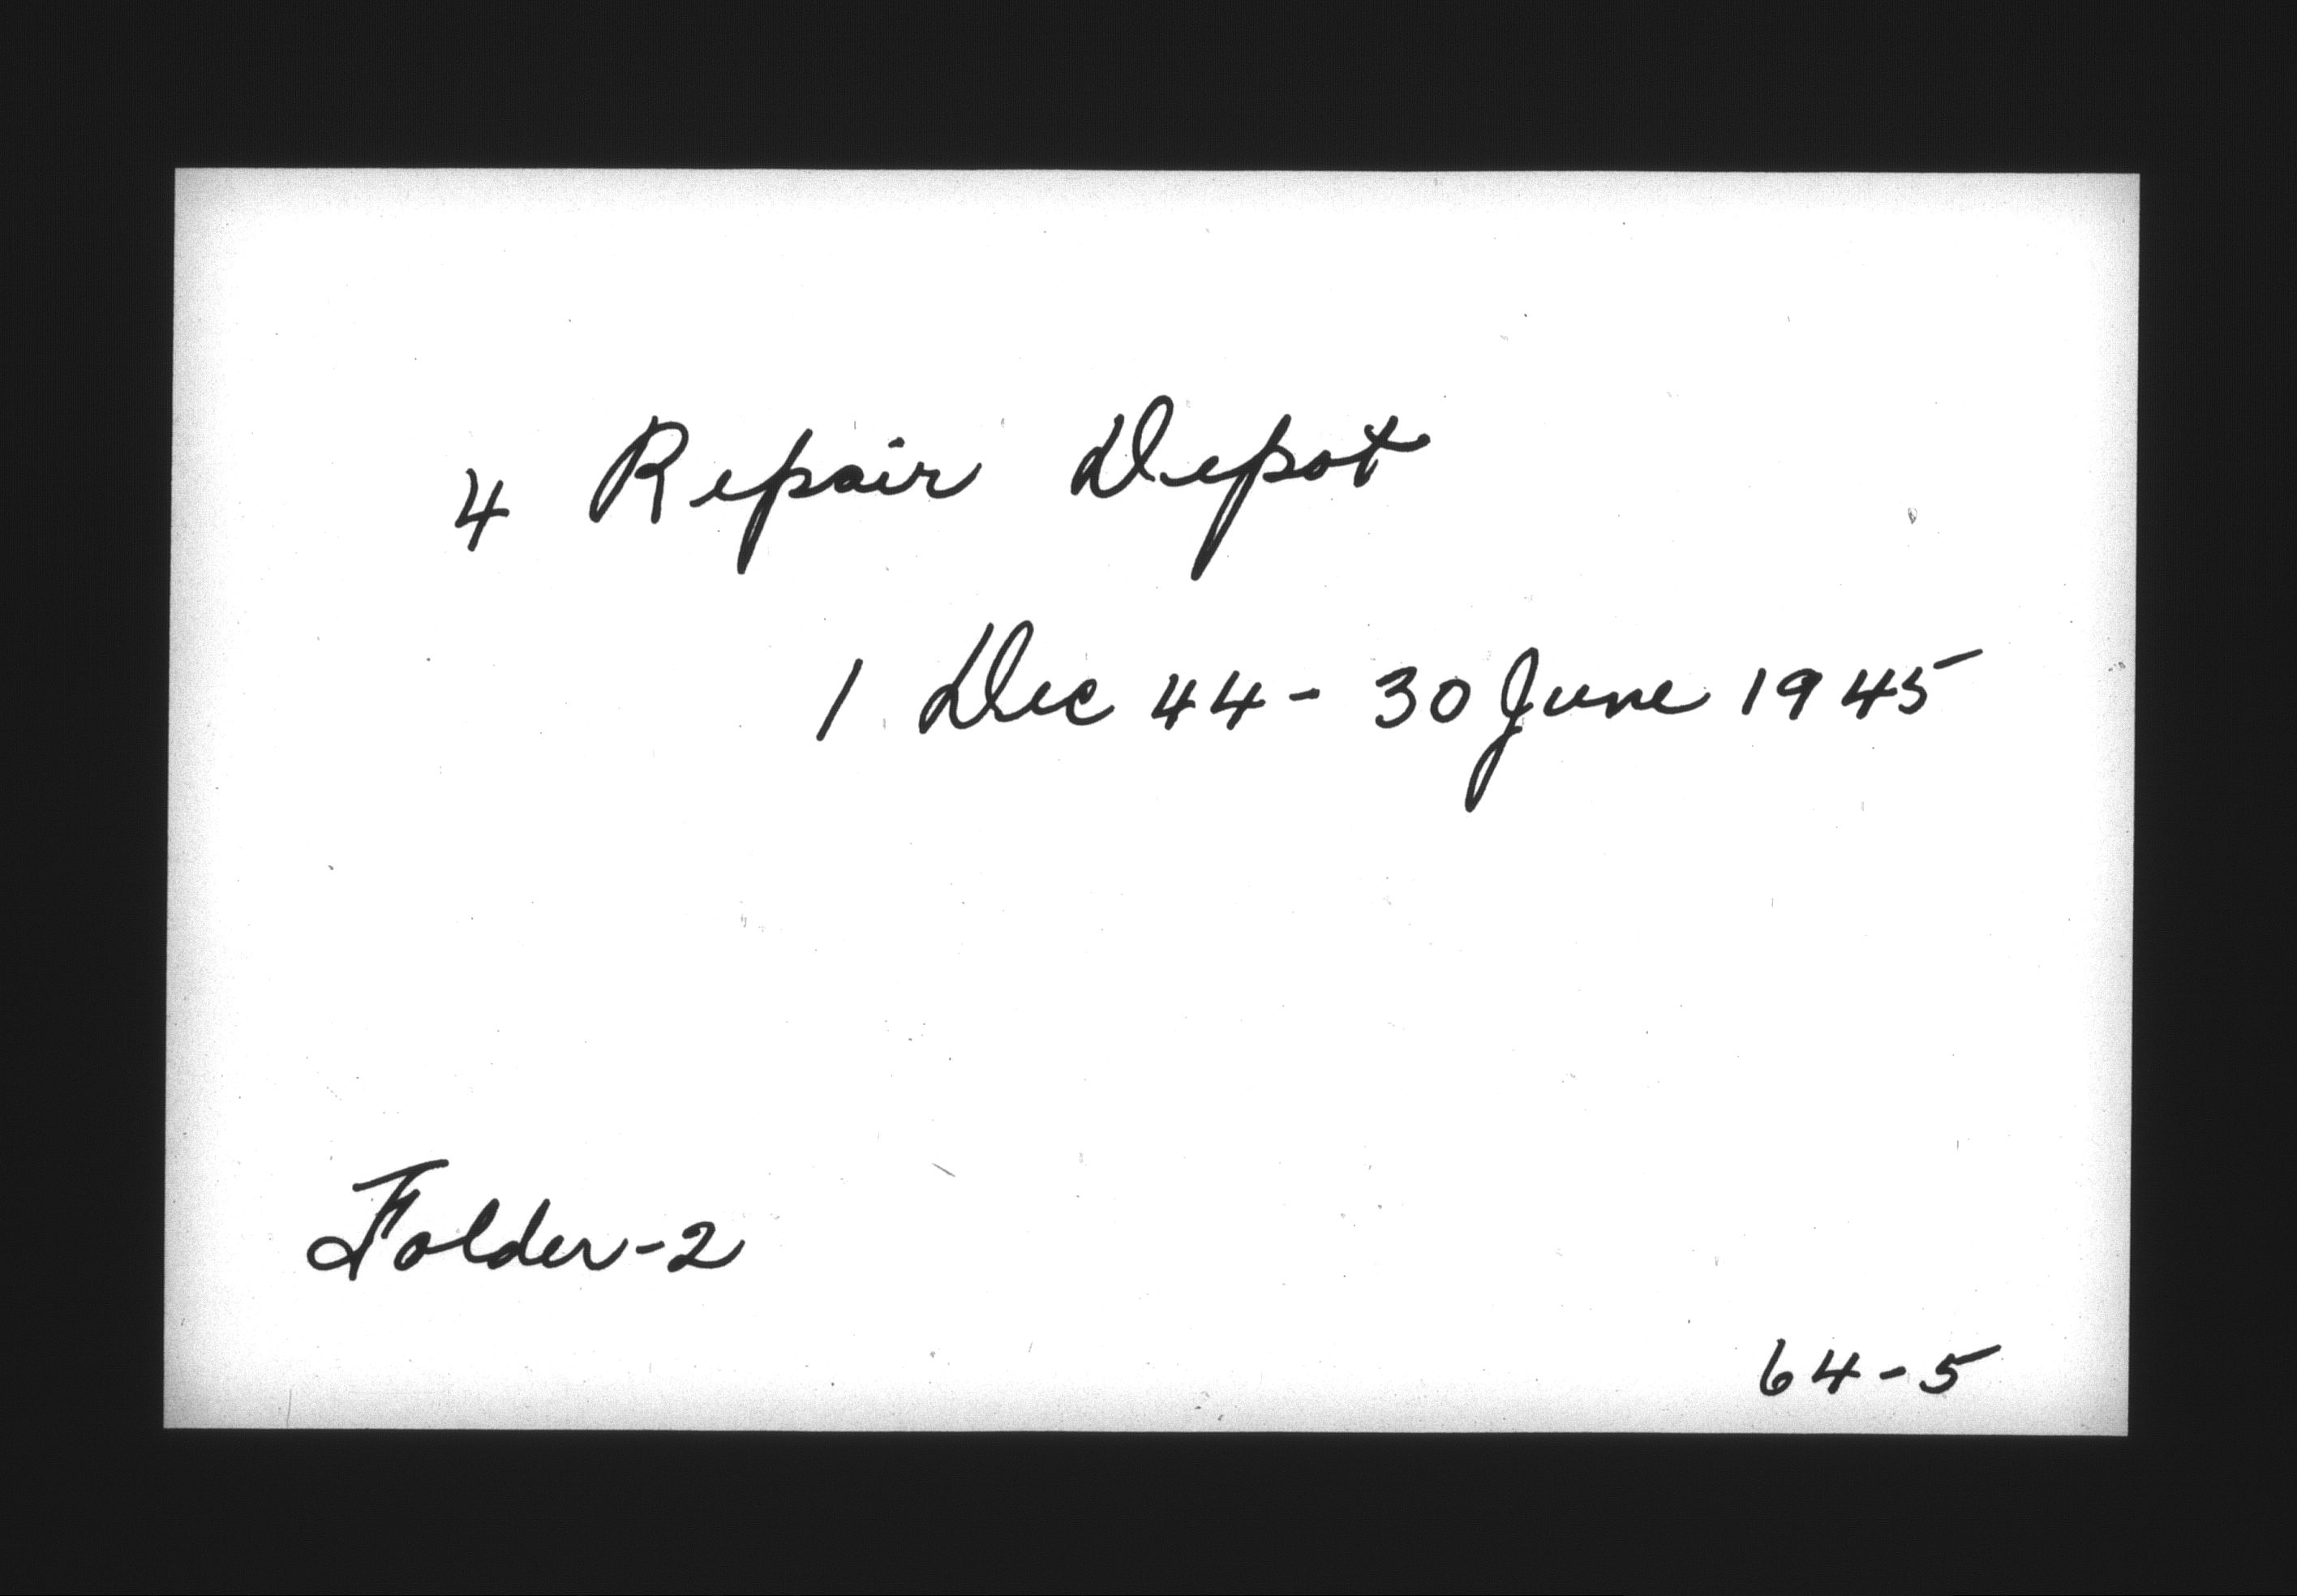 4 Repair Depot
1 Dec 44 - 30 June 1945
Folder-2
64-5